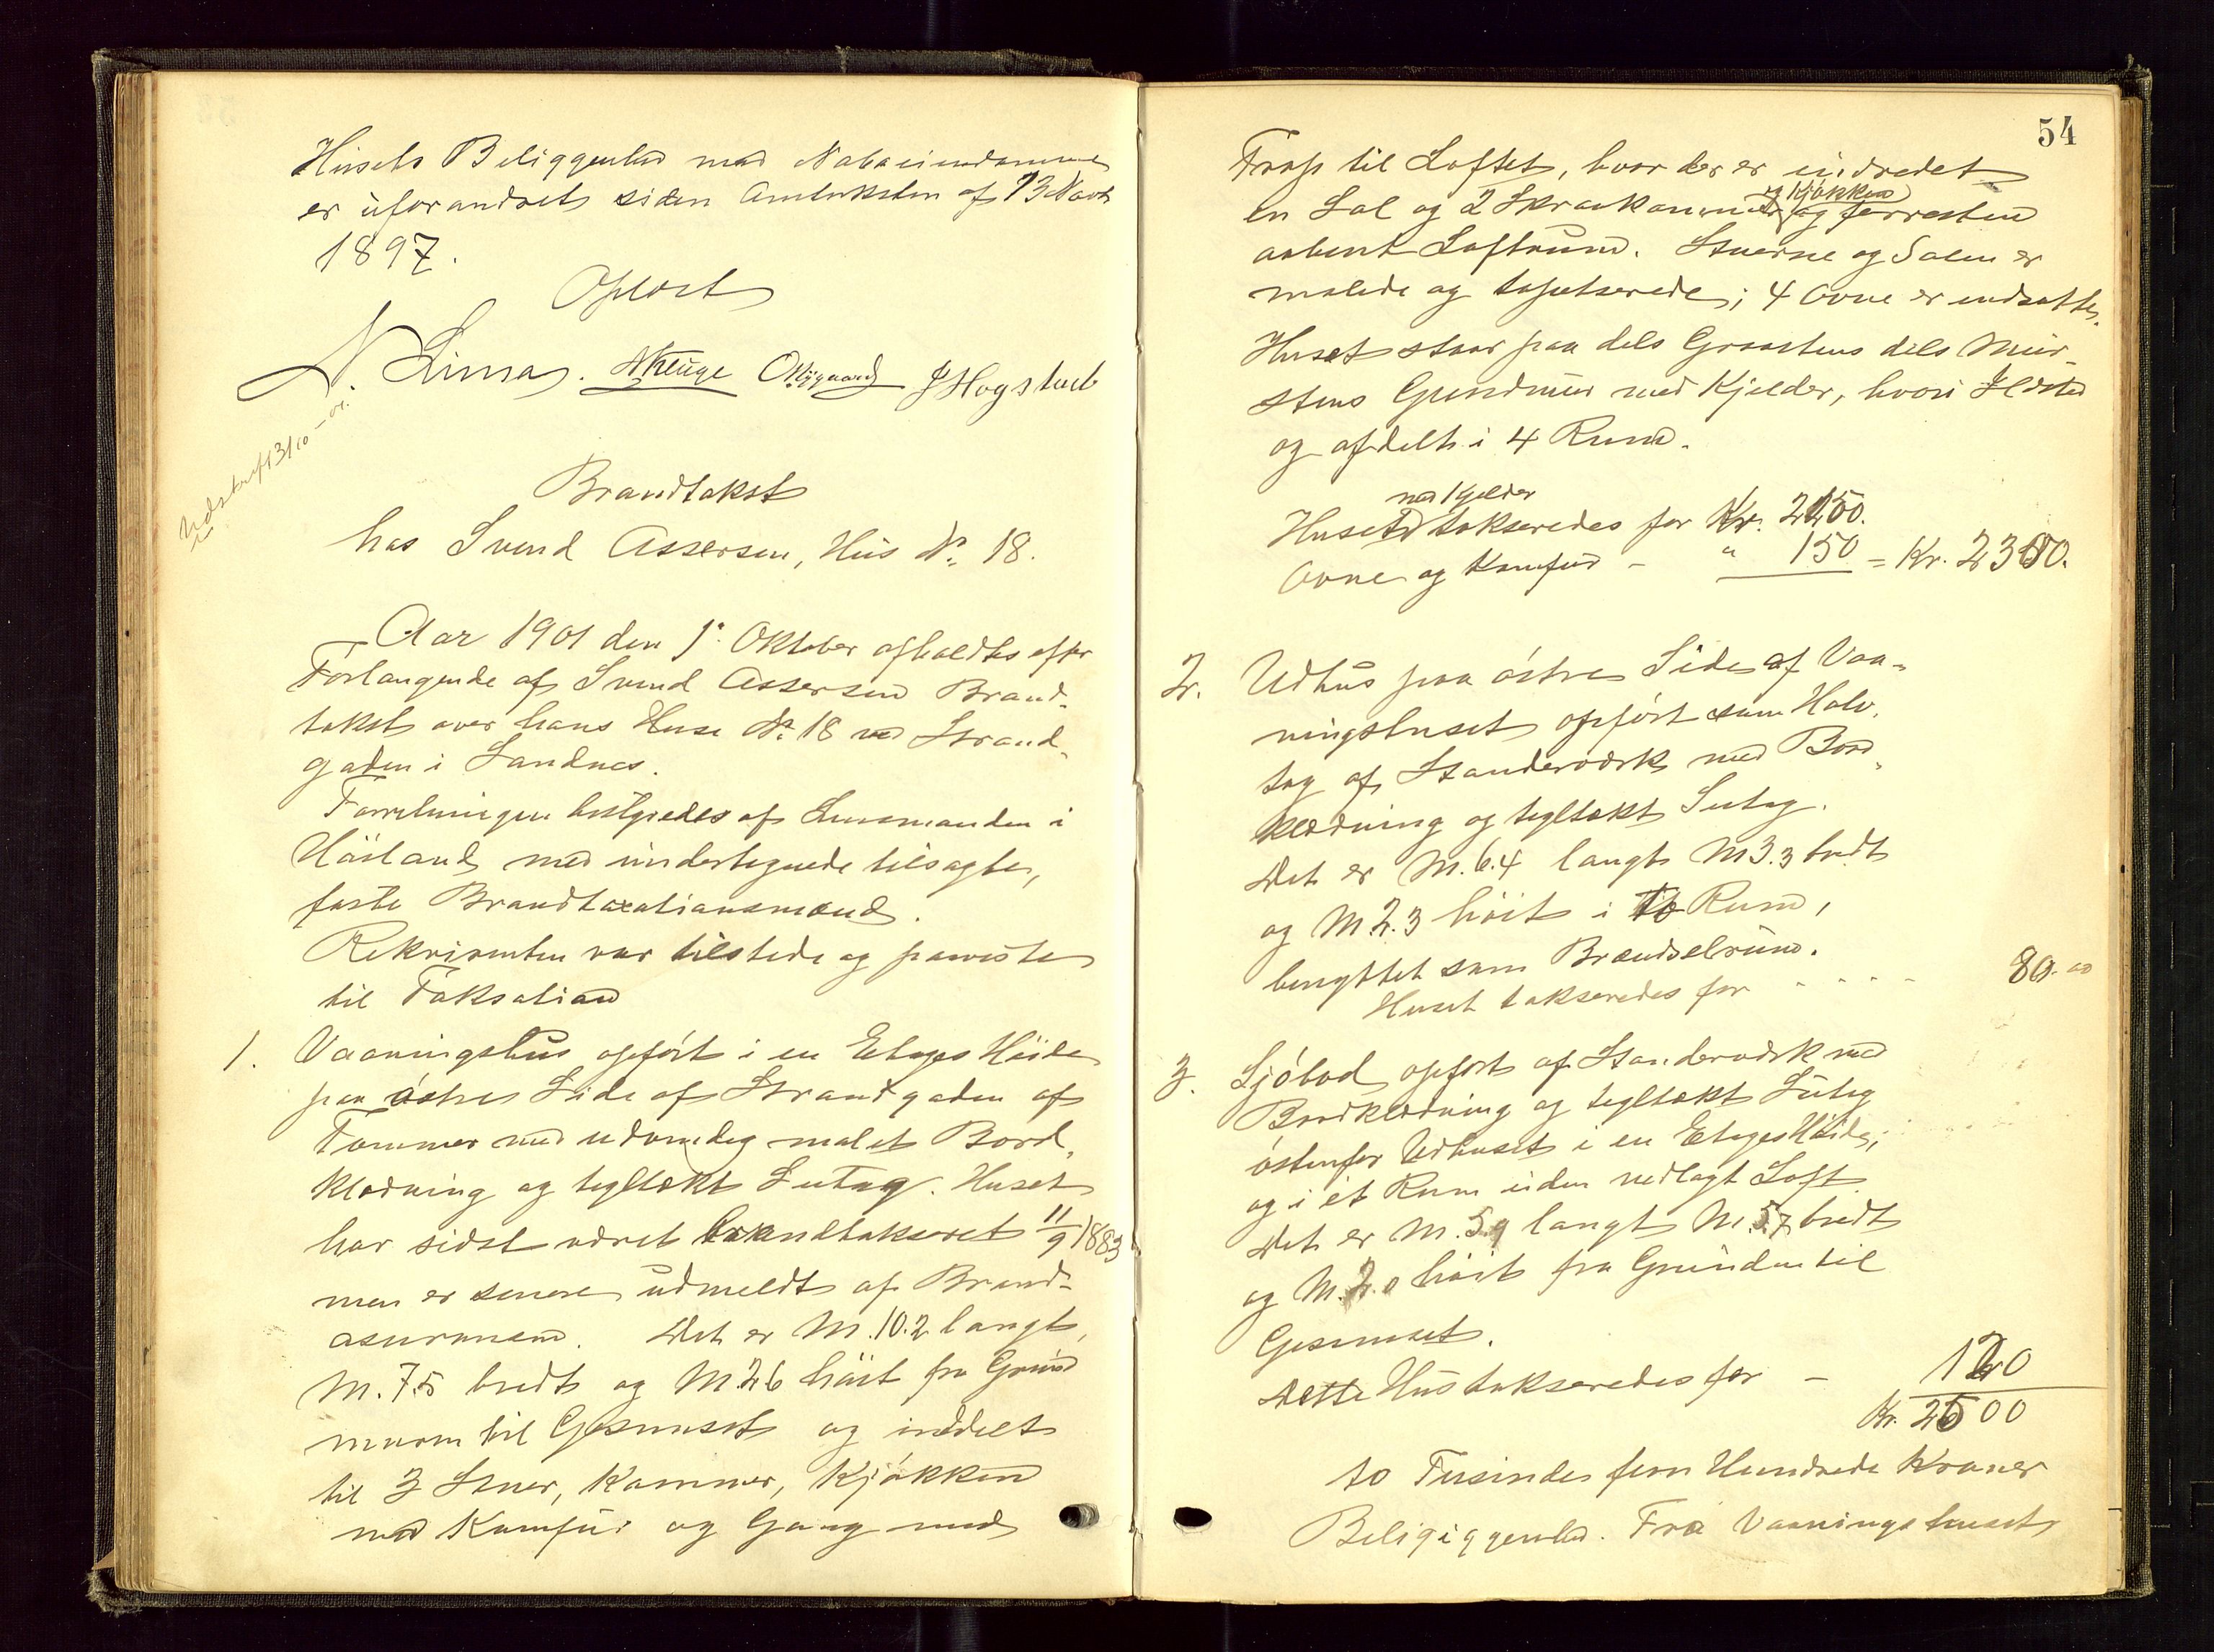 Husets Beliggenhed med Naboeiendomme
er uforandret siden Omtaksten af 13 Novb
1897.
Oplæst
N. Lima. O Nygaard J Hogstad
Udskrift 13/10 - 01.
Brandtakst
hos Svend Assersen, Hus No. 18.
Aar 1901 den 1. Oktober afholdtes efter
Forlangende af Svend Assersen Brand-
takst over hans Huse No. 18 ved Strand-
gaden i Sandnes.
Forretningen bestyredes af Lensmanden i
Høiland med undertegnede tilsagte,
faste Brandtaxationsmænd.
Rekvirenten var tilstede og paaviste
til Taksation
1. Vaaningshus opført i en Etages Høide
paa østre Side af Strandgaden af
Tømmer med udvendig malet Bord-
klædning og tegltækt Sutag. Huset
har sidst været brandtakseret 11/9 1883
men er senere udmeldt af Brand-
assurancen. Det er M. 10.2 langt,
M. 7.5 bredt og M 2.6 høit fra Grund
muren til Gesimset og inddelt
til 3 Stuer, Kammer, Kjøkken
med Komfur og Gang med
54
Trap til Loftet, hvor der er indredet
og Kjøkken
en Sal og 2 Skraakammer og forresten
aabent Loftrum. Stuerne og Salen er
malede og tapetserede; 4 Ovne er indsatte.
Huset staar paa dels Graastens dels Mur-
stens Grundmur med Kjelder, hvori Ildsted
og afdelt i 4 Rum.
med Kjelder
Huset takseredes for Kr. 2150.
Ovne og Komfur - " 150 = Kr. 2300.
2. Udhus paa østre Side af Vaa-
ningshuset opført som Halv-
tag af Standerværk med Bord-
klædning og tegltækt Sutag.
Det er M. 6.4 langt M 3.3 bredt
og M 2.3 høit i to Rum,
benyttet som Brændselrum.
Huset takseredes for - - - - 80.00
3. Sjøbod opført af Standerværk med
Bordklædning og tegltækt Sutag
østenfor Udhuset i en Etages Høide;
og i et Rum uden nedlagt Loft
Det er M. 5.9 langt M. 5.7 bredt
og M. 2.0 høit fra Grunden til
Gesimset.
Dette Hus takseredes for - 120
Kr. 2500
to Tusinde fem Hundrede Kroner
Beligiggenhed. Fra Vaaningshuset